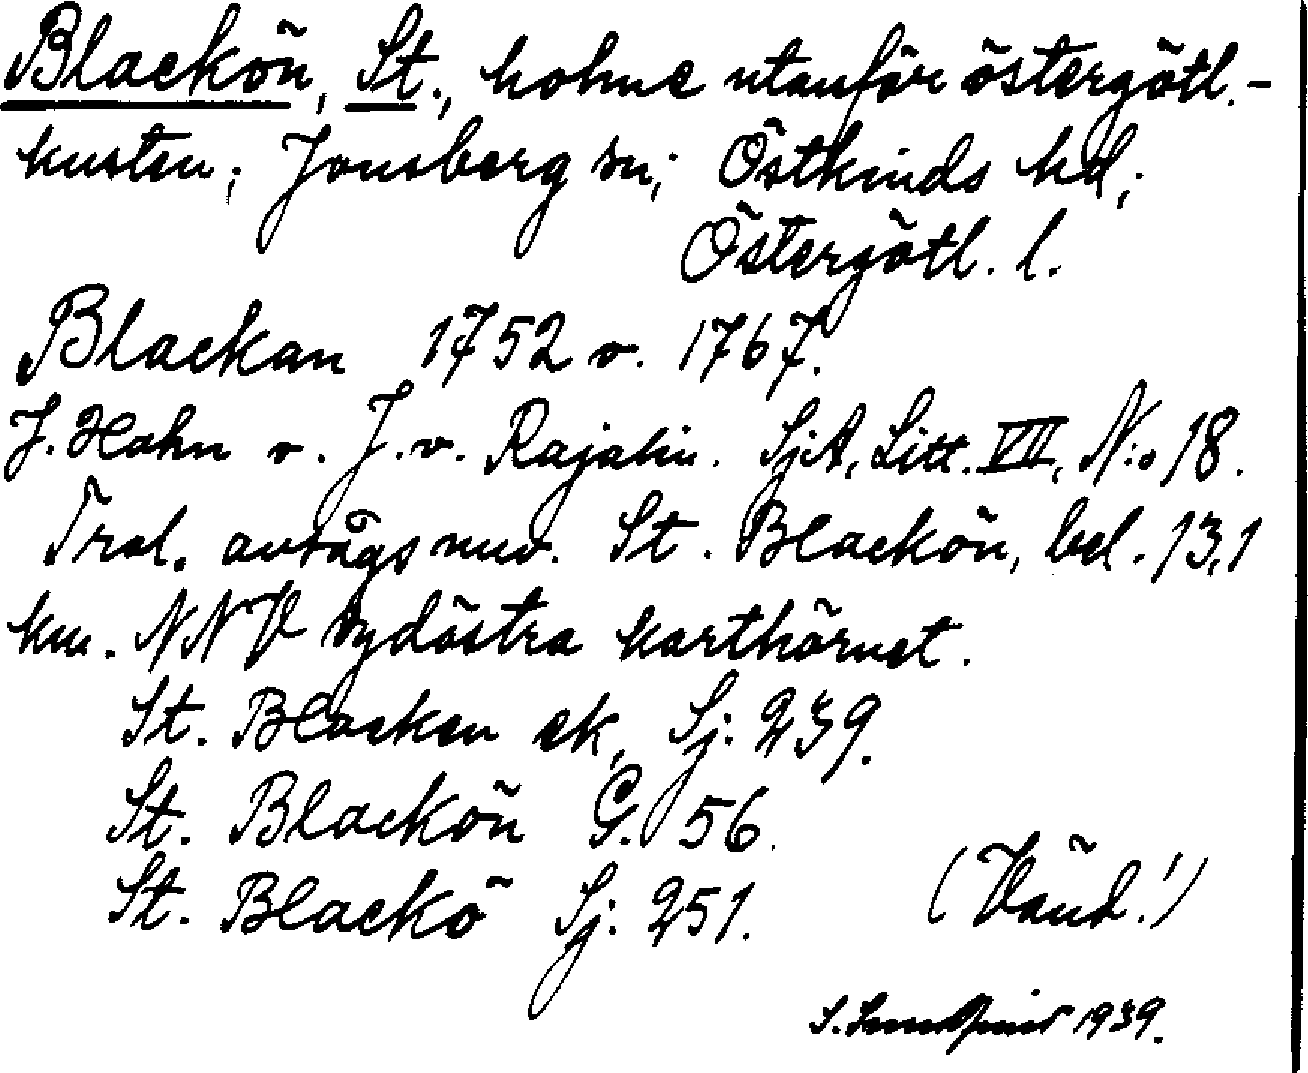 Blackön, St., holme utanför östergötl.-
kusten; Jonsberg sn; Östkinds hd;
Östergötl. l.
Blackan 1752 o. 1767.
J. Hahn o. J. v. Rajalin. SjA, Litt. VII, N:o 18.
Trol. avsågs nuv. St. Blackön, bel. 13,1
km. NNV sydöstra karthörnet.
St. Blacken ek, Sj: 239.
St. Blackön G. 56.
St. Blackö Sj: 251.
(Vänd!)
S. 1939.